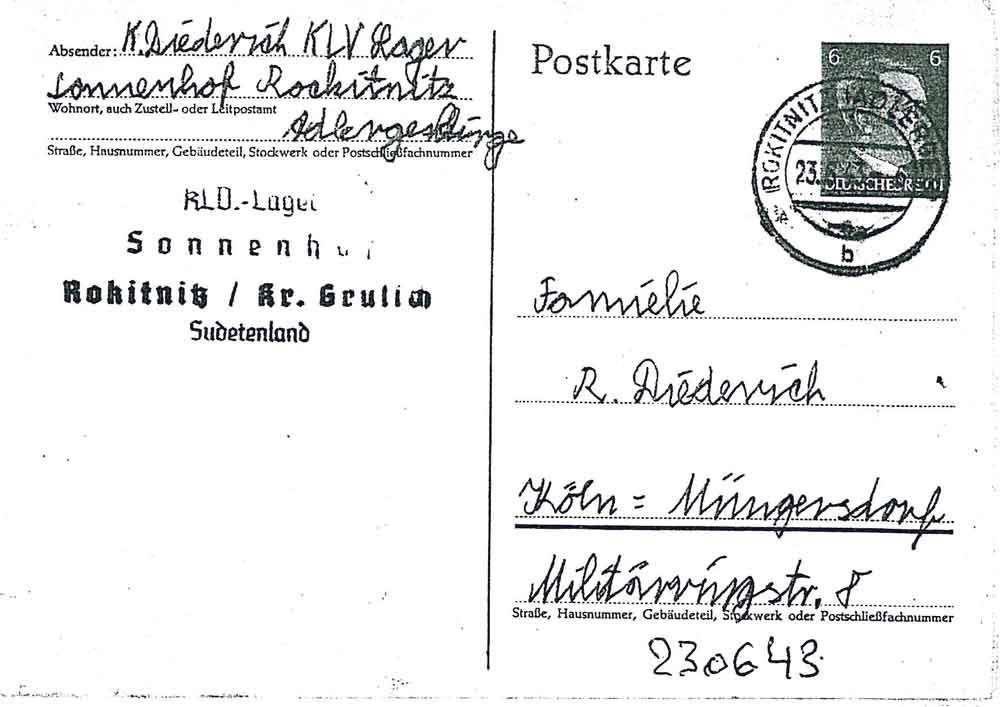 Absender: K. Diederich KLV Lager
Sonnenhof Rockitnitz
Wohnort, auch Zustell- oder Leitpostamt
Adlergebirge
Straße, Hausnummer, Gebäudeteil, Stockwerk oder Postschließfachnummer
KLV.-Lager
Sonnenh
Rokitnitz / Kr. Grulich
Sudetenland
Postkarte
6 6
ROKITNITZ
23.
DEUTSCHES REICH
b
Familie
R. Diederich
Köln = Müngersdorf
Militärringstr. 8
Straße, Hausnummer, Gebäudeteil, Stockwerk oder Postschließfachnummer
230643